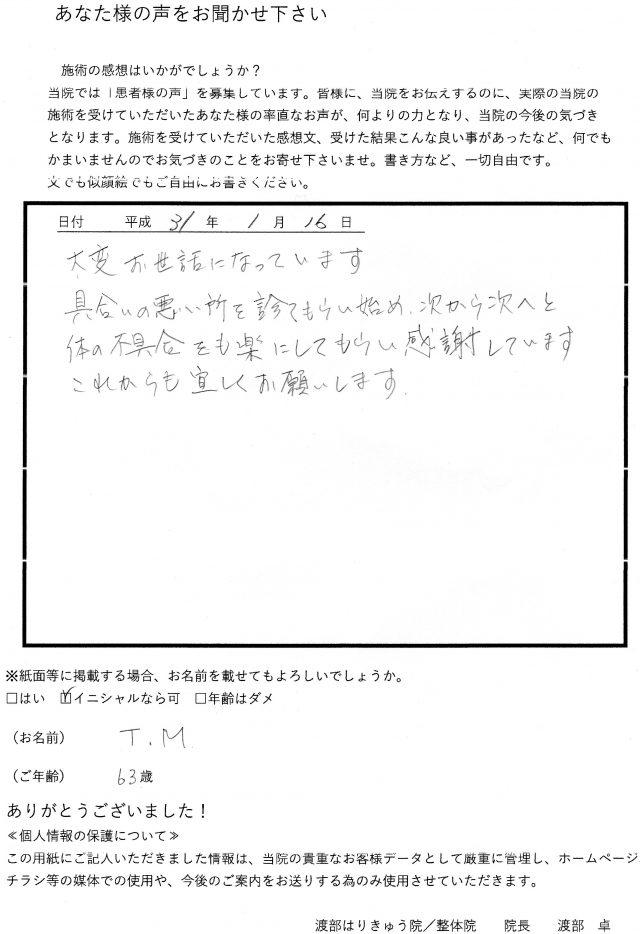 あなた様の声をお聞かせ下さい
施術の感想はいかがでしょうか？
当院では「患者様の声」を募集しています。皆様に、当院をお伝えするのに、実際の当院の
施術を受けていただいたあなた様の率直なお声が、何よりの力となり、当院の今後の気づき
となります。施術を受けていただいた感想文、受けた結果こんな良い事があったなど、何でも
かまいませんのでお気づきのことをお寄せ下さいませ。書き方など、一切自由です。
文でも似顔絵でもご自由にお書きください。
日付 平成 31 年 1 月 16 日
大変お世話になっています
具合いの悪い所を診てもらい始め、次から次へと
体の不具合をも楽にしてもらい感謝しています
これからも宜しくお願いします.
※紙面等に掲載する場合、お名前を載せてもよろしいでしょうか。
□はい ☑イニシャルなら可 □年齢はダメ
（お名前） T.M
（ご年齢） 63歳
ありがとうございました！
≪個人情報の保護について≫
この用紙にご記入いただきました情報は、当院の貴重なお客様データとして厳重に管理し、ホームページ
チラシ等の媒体での使用や、今後のご案内をお送りする為のみ使用させていただきます。
渡部はりきゅう院／整体院 院長 渡部 卓